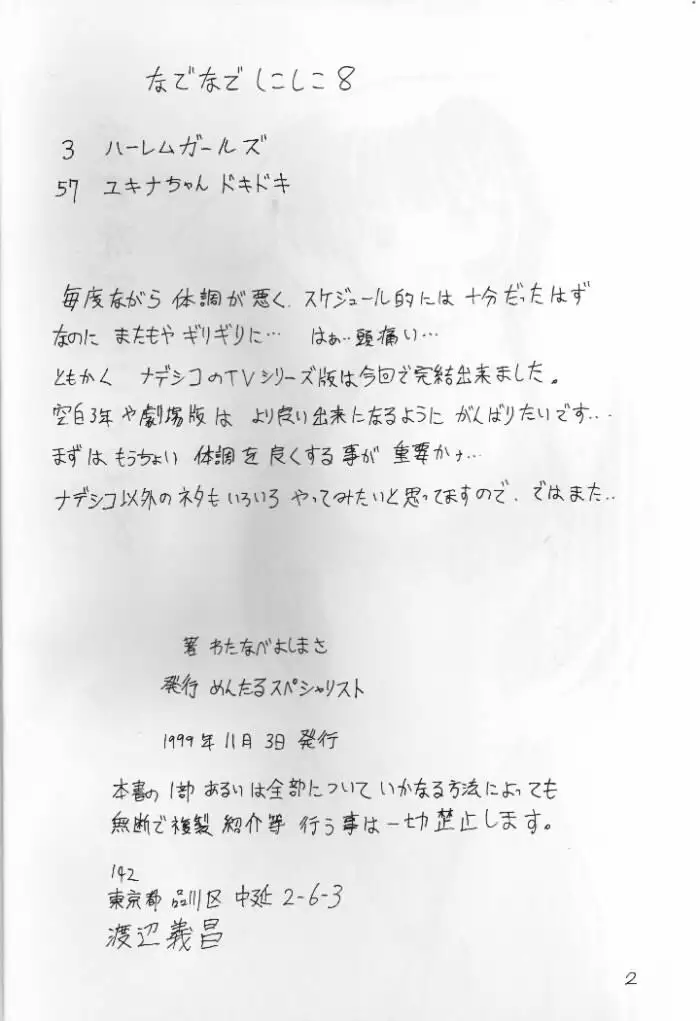 なでなでしこしこ8
3 ハーレムガールズ
57 ユキナちゃん ドキドキ
毎度ながら 体調が悪く、スケジュール的には 十分だったはず
なのに またもや ギリギリに… はぁ…頭痛い…
ともかく ナデシコのTVシリーズ版は今回で完結出来ました。
空白3年や劇場版は より良い出来になるように がんばりたいです…
まずは もうちょい 体調を良くする事が 重要かナ…
ナデシコ以外のネタもいろいろ やってみたいと思ってますので、ではまた..
著 わたなべよしまさ
発行 めんたるスペシャリスト
1999年11月3日 発行
本書の1部あるいは全部について いかなる方法によっても
無断で複製 紹介等 行う事は一切禁止します。
142
東京都 品川区 中延 2-6-3
渡辺義昌
2